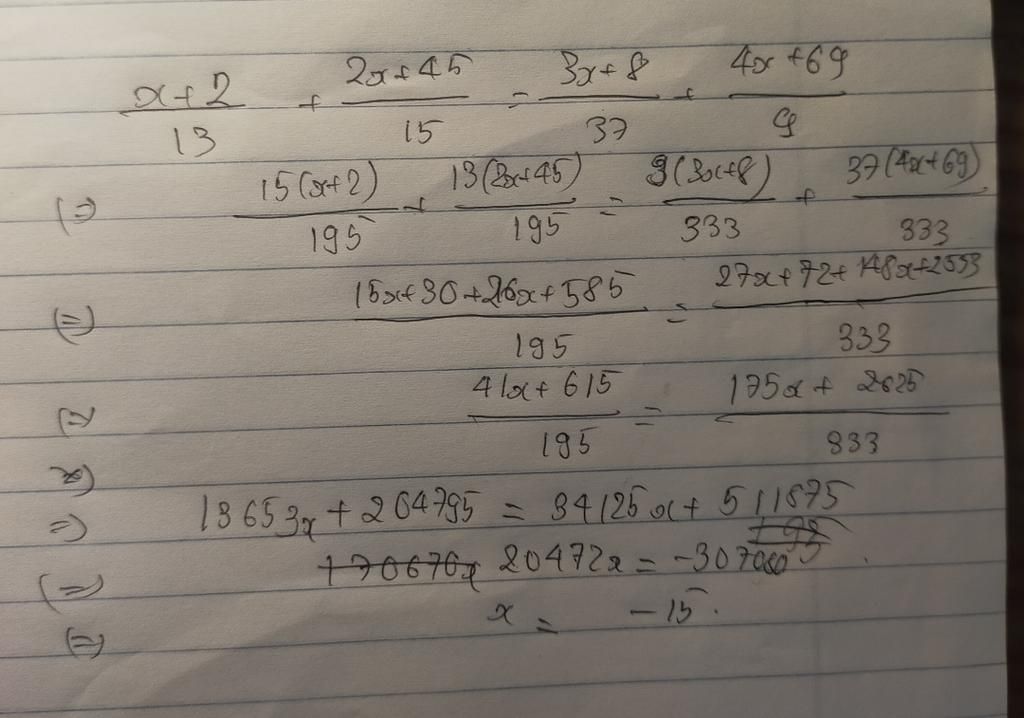 x+2/13 + 2x+45/15 = 3x+8/37 + 4x+69/9
(=) 15(x+2)/195 + 13(2x+45)/195 = 9(3x+8)/333 + 37(4x+69)/333
(=) 15x+30+26x+585/195 = 27x+72+148x+2553/333
(=) 41x+615/195 = 175x+2625/333
(=) 13653x+204795 = 34125x+511875
(=) 20472x = -307080
(=) x = -15.